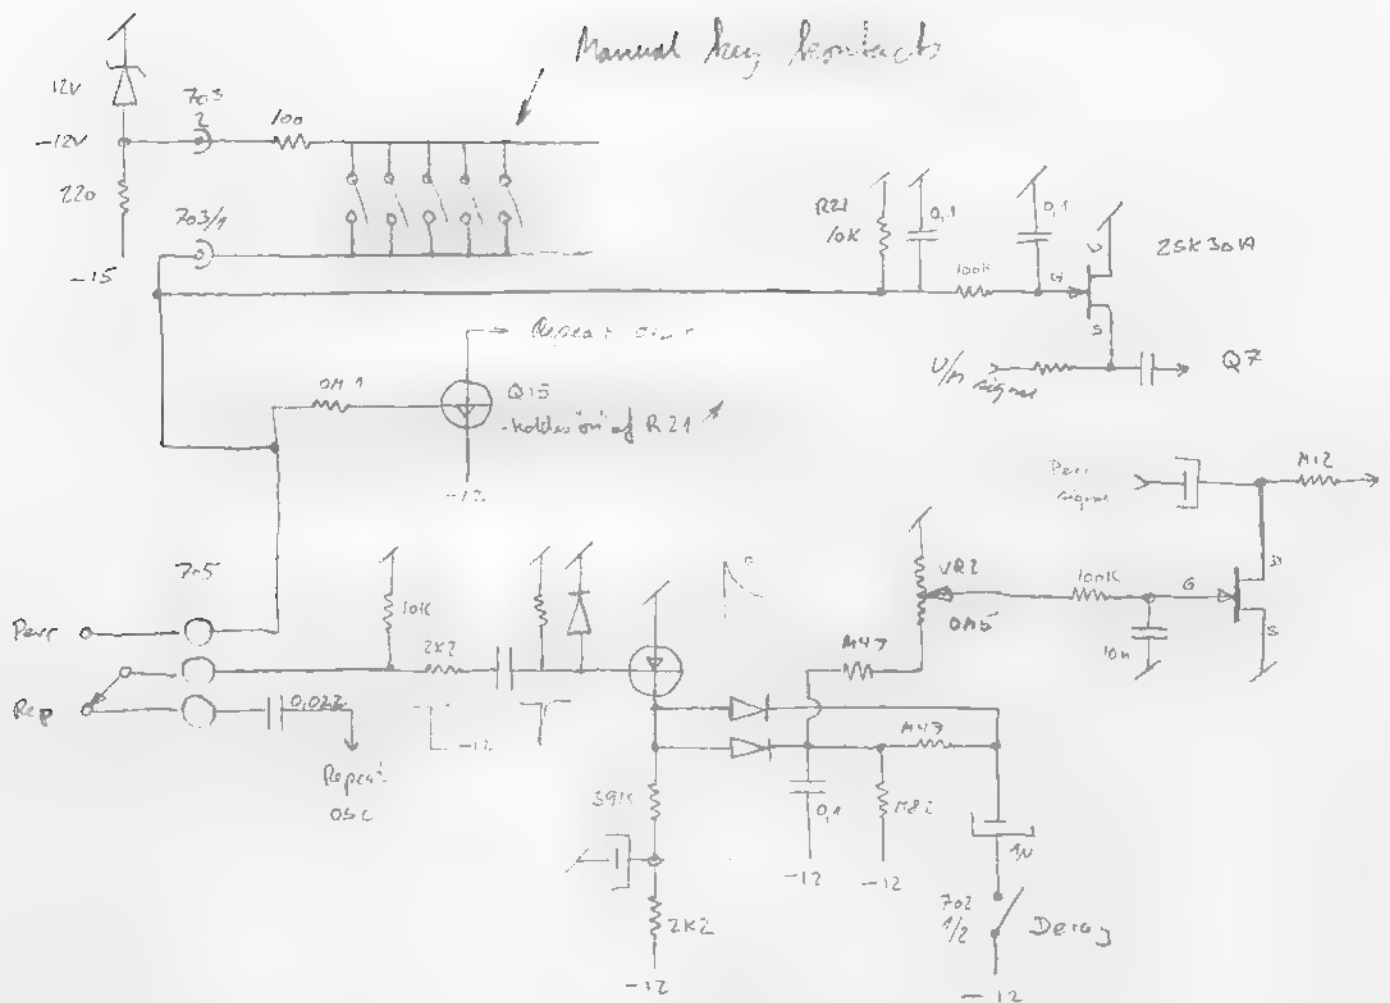 Manual key kontacts
12V
703
2
100
-12V
220
703/1
-15
R21
10K
0,1
0,1
100K
G
D
S
2SK30A
U/M signal
Q7
Repeat
0M1
Q15
"on" of R21
-12
Perc
signal
M12
705
Perc
Rep
10K
2K2
0,022
Repeat
osc
-12
VR2
0M5
100K
G
D
S
10n
M47
M47
39K
0,1
M82
1U
-12
-12
2K2
-12
702
1/2
Decay
-12